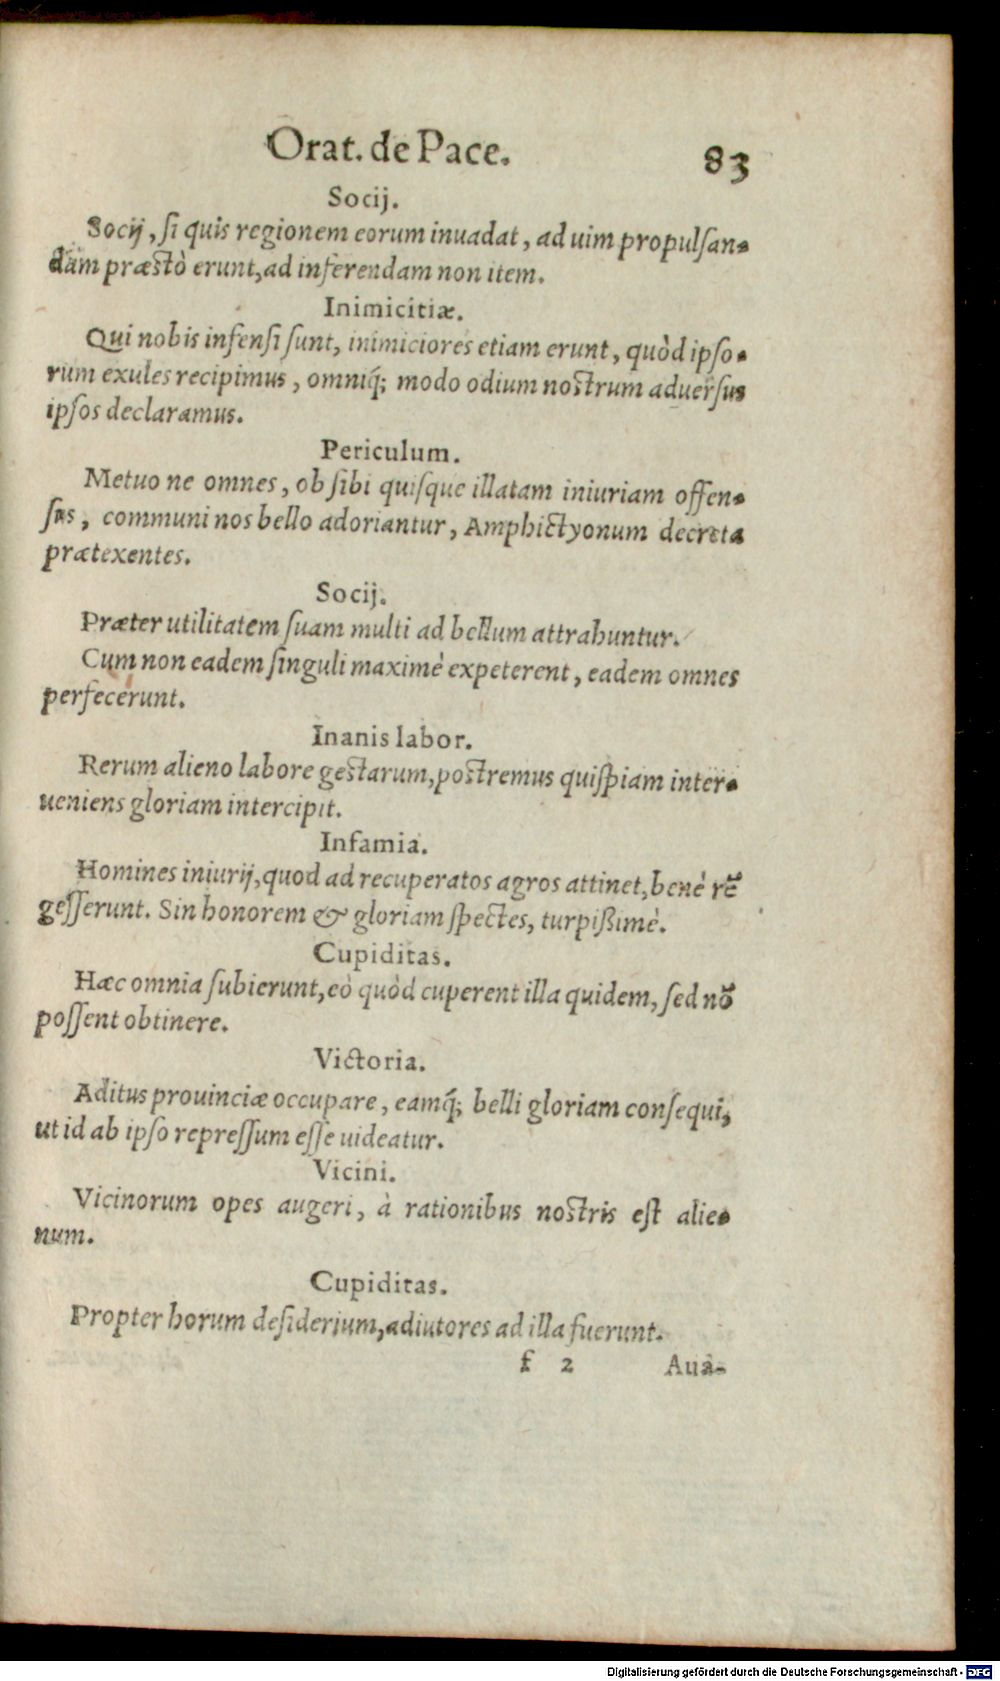 Orat. de Pace. 83
Socij.
Socij, ſi quis regionem eorum inuadat, ad uim propulſan-
dam præstò erunt, ad inferendam non item.
Inimicitiæ.
Qui nobis infenſi ſunt, inimiciores etiam erunt, quòd ipſo-
rum exules recipimus, omniq́; modo odium nostrum aduerſus
ipſos declaramus.
Periculum.
Metuo ne omnes, ob ſibi quiſque illatam iniuriam offen-
ſas, communi nos bello adoriantur, Amphictyonum decreta
prætexentes.
Socij.
Præter utilitatem ſuam multi ad bellum attrahuntur.
Cum non eadem ſinguli maximè expeterent, eadem omnes
perfecerunt.
Inanis labor.
Rerum alieno labore gestarum, postremus quiſpiam inter-
ueniens gloriam intercipit.
Infamia.
Homines iniurij, quod ad recuperatos agros attinet, benè rẽ
geſſerunt. Sin honorem & gloriam ſpectes, turpißimè.
Cupiditas.
Hæc omnia ſubierunt, eò quòd cuperent illa quidem, ſed nõ
poſſent obtinere.
Victoria.
Aditus prouinciæ occupare, eamq́; belli gloriam conſequi,
ut id ab ipſo repreſſum eſſe uideatur.
Vicini.
Vicinorum opes augeri, à rationibus nostris eſt alie-
num.
Cupiditas.
Propter horum deſiderium, adiutores ad illa fuerunt.
f 2 Aua-
Digitalisierung gefördert durch die Deutsche Forschungsgemeinschaft - DFG